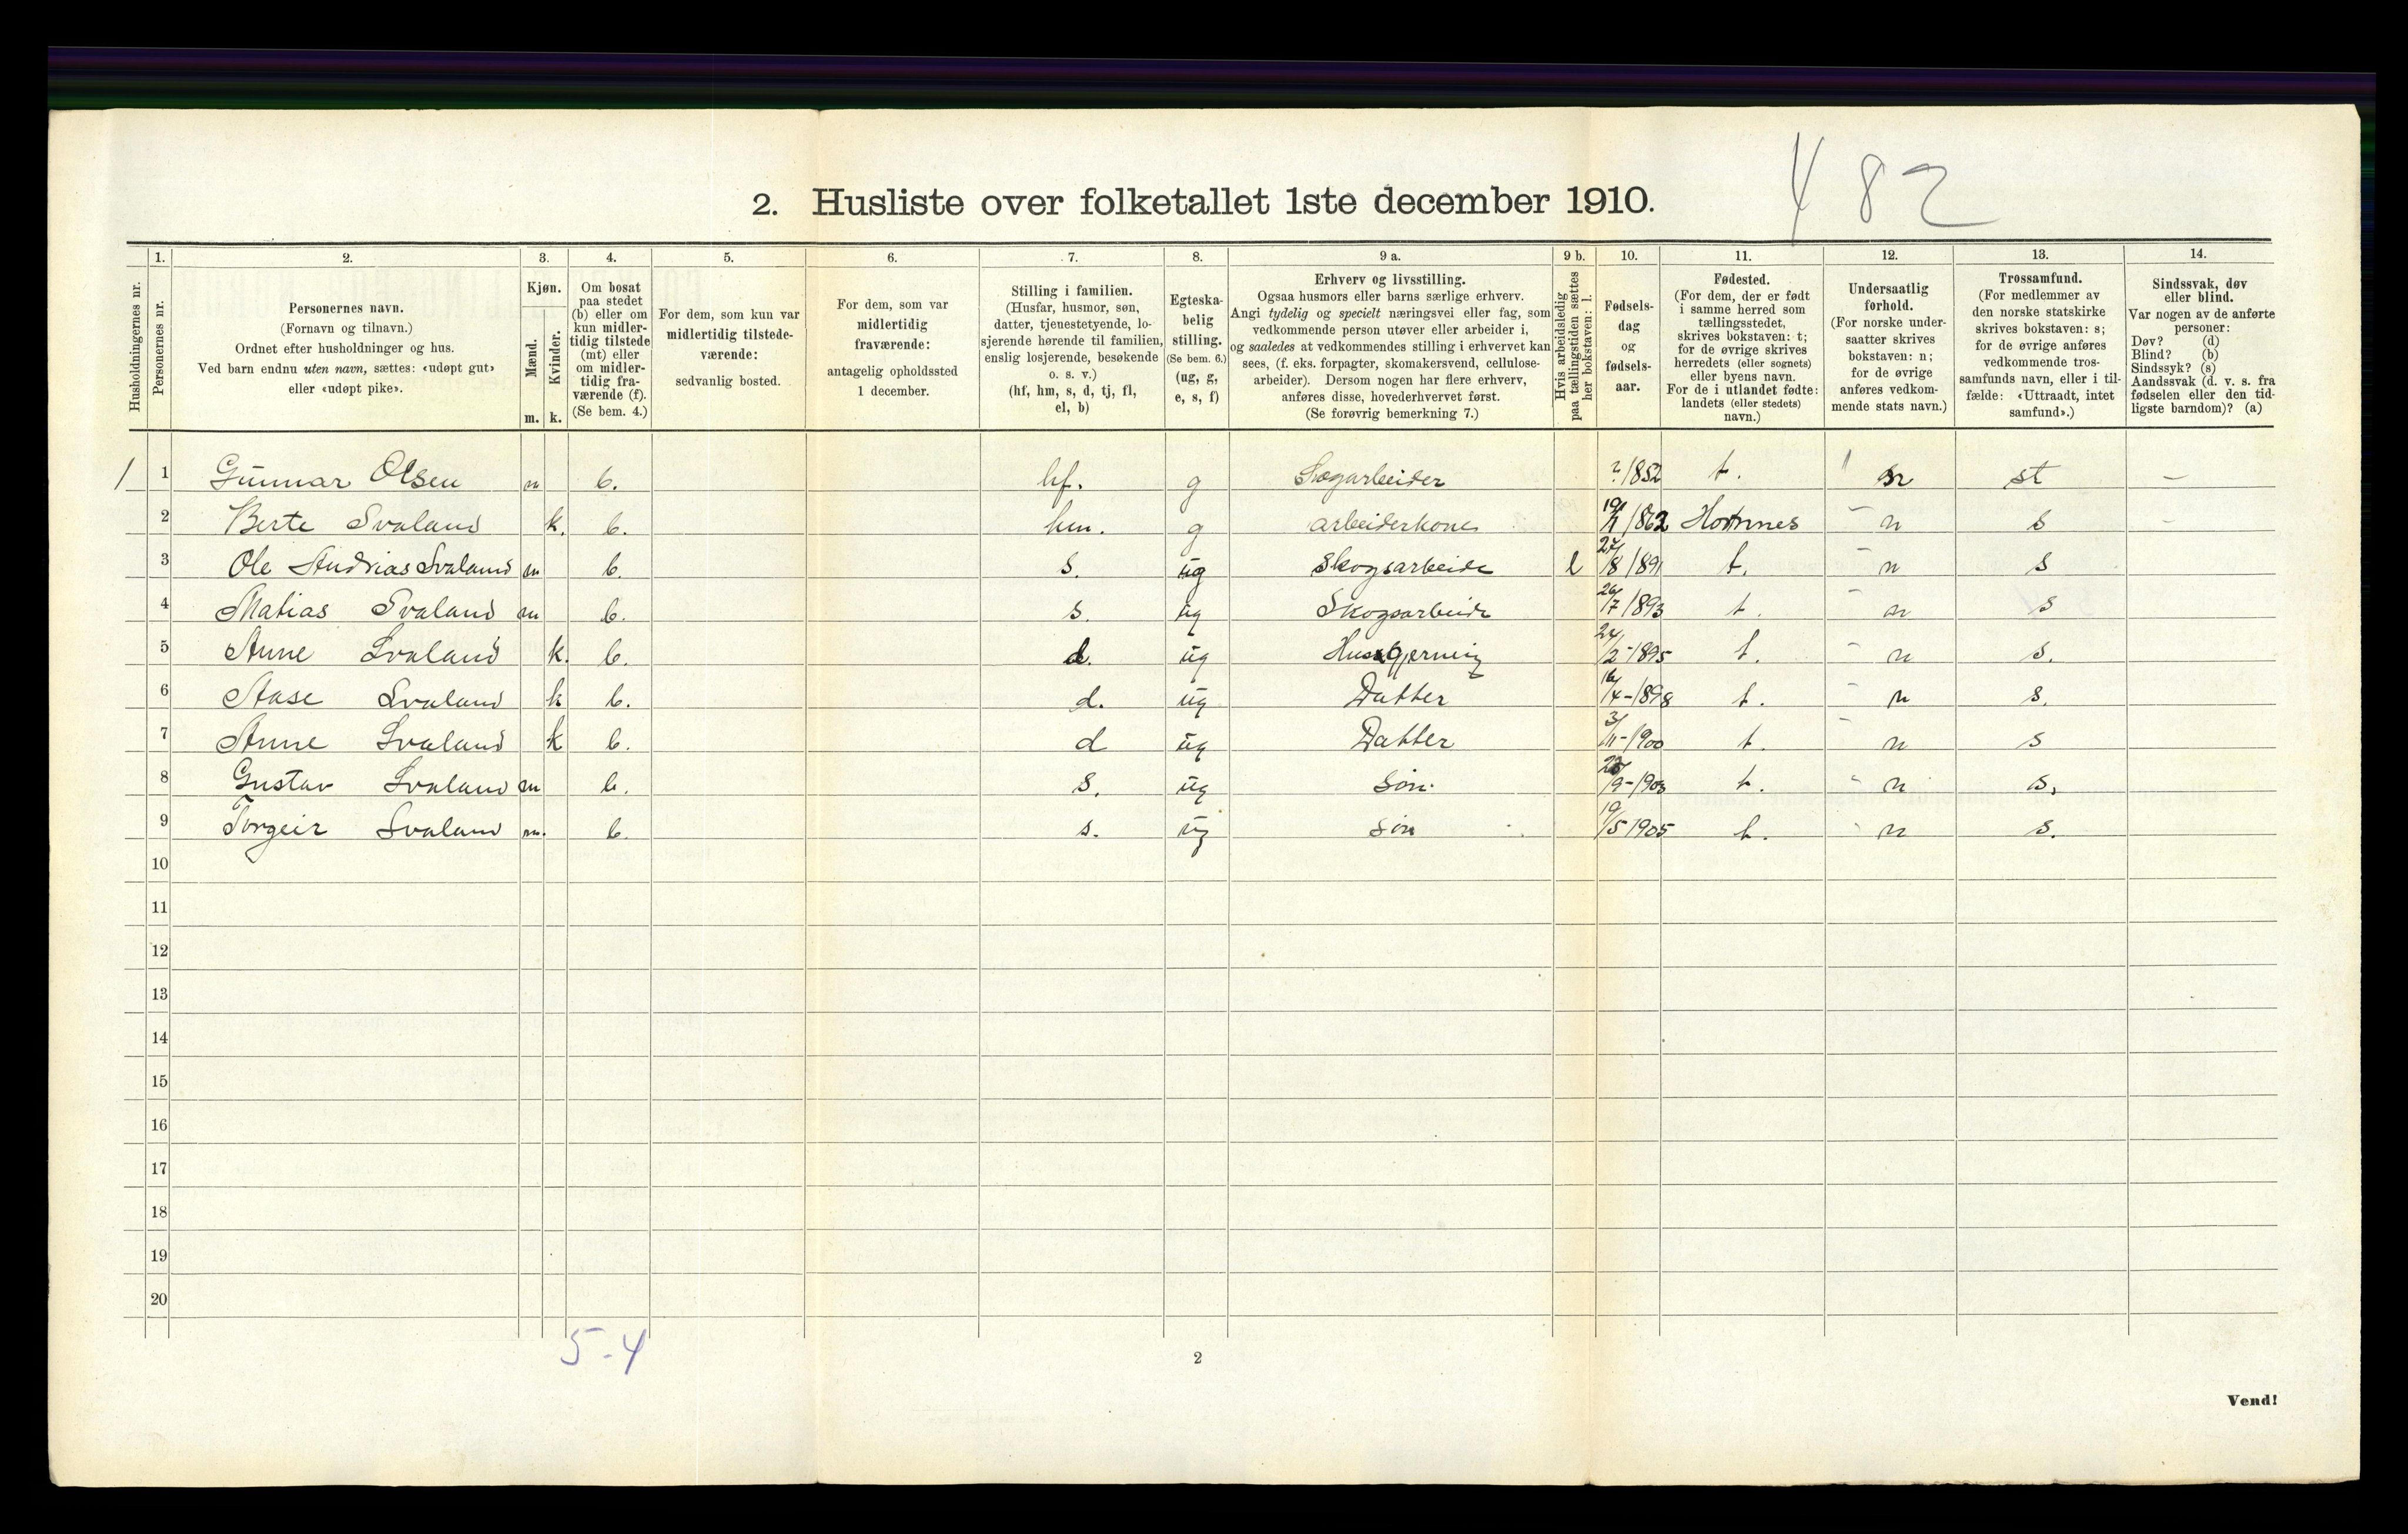 482
2. Husliste over folketallet 1ste december 1910.
Husholdningernes nr.
1. Personernes nr.
2. Personernes navn.
(Fornavn og tilnavn.)
Ordnet efter husholdninger og hus.
Ved barn endnu uten navn, sættes: «udøpt gut»
eller «udøpt pike».
3. Kjøn.
Mænd. m.
Kvinder. k.
4. Om bosat
paa stedet
(b) eller om
kun midler-
tidig tilstede
(mt) eller
om midler-
tidig fra-
værende (f).
(Se bem. 4.)
5. For dem, som kun var
midlertidig tilstede-
værende:
sedvanlig bosted.
6. For dem, som var
midlertidig
fraværende:
antagelig opholdssted
1 december.
7. Stilling i familien.
(Husfar, husmor, søn,
datter, tjenestetyende, lo-
sjerende hørende til familien,
enslig losjerende, besøkende
o. s. v.)
(hf, hm, s, d, tj, fl,
el, b)
8. Egteska-
belig
stilling.
(Se bem. 6.)
(ug, g,
e, s, f)
9 a. Erhverv og livsstilling.
Ogsaa husmors eller barns særlige erhverv.
Angi tydelig og specielt næringsvei eller fag, som
vedkommende person utøver eller arbeider i,
og saaledes at vedkommendes stilling i erhvervet kan
sees, (f. eks. forpagter, skomakersvend, cellulose-
arbeider). Dersom nogen har flere erhverv,
anføres disse, hovederhvervet først.
(Se forøvrig bemerkning 7.)
9 b. Hvis arbeidsledig
paa tællingstiden sættes
her bokstaven: l.
10. Fødsels-
dag
og
fødsels-
aar.
11. Fødested.
(For dem, der er født
i samme herred som
tællingsstedet,
skrives bokstaven: t;
for de øvrige skrives
herredets (eller sognets)
eller byens navn.
For de i utlandet fødte:
landets (eller stedets)
navn.)
12. Undersaatlig
forhold.
(For norske under-
saatter skrives
bokstaven: n;
for de øvrige
anføres vedkom-
mende stats navn.)
13. Trossamfund.
(For medlemmer av
den norske statskirke
skrives bokstaven: s;
for de øvrige anføres
vedkommende tros-
samfunds navn, eller i til-
fælde: «Uttraadt, intet
samfund».)
14. Sindssvak, døv
eller blind.
Var nogen av de anførte
personer:
Døv? (d)
Blind? (b)
Sindssyk? (s)
Aandssvak (d. v. s. fra
fødselen eller den tid-
ligste barndom)? (a)
1 1 Gunnar Olsen m b. hf. g Skogarbeider ?/1852 t. n st –
2 Berte Svaland k. b. hm. g arbeiderkone 1862 Hornnes n s –
3 Ole Andrias Svaland m b. s. ug Skogsarbeide l 27/8 1891 t. n s
4 Matias Svaland m b. s. ug Skogsarbeide 26/7 1893 t. n s
5 Anne Svaland k. b. d. ug Husgjerning 24/2-1895 t. n s.
6 Aase Svaland k b. d. ug Datter 16/4-1898 t. n s.
7 Anne Svaland k b. d ug Datter 3/11-1900 t. n s
8 Gustav Svaland m b. s. ug Søn /9-1903 t. n s.
9 Torgeir Svaland m. b. s. ug Søn 19/5 1905 t. n s.
10
11
12
13
14
15
16
17
18
19
20
5-4
2
Vend!